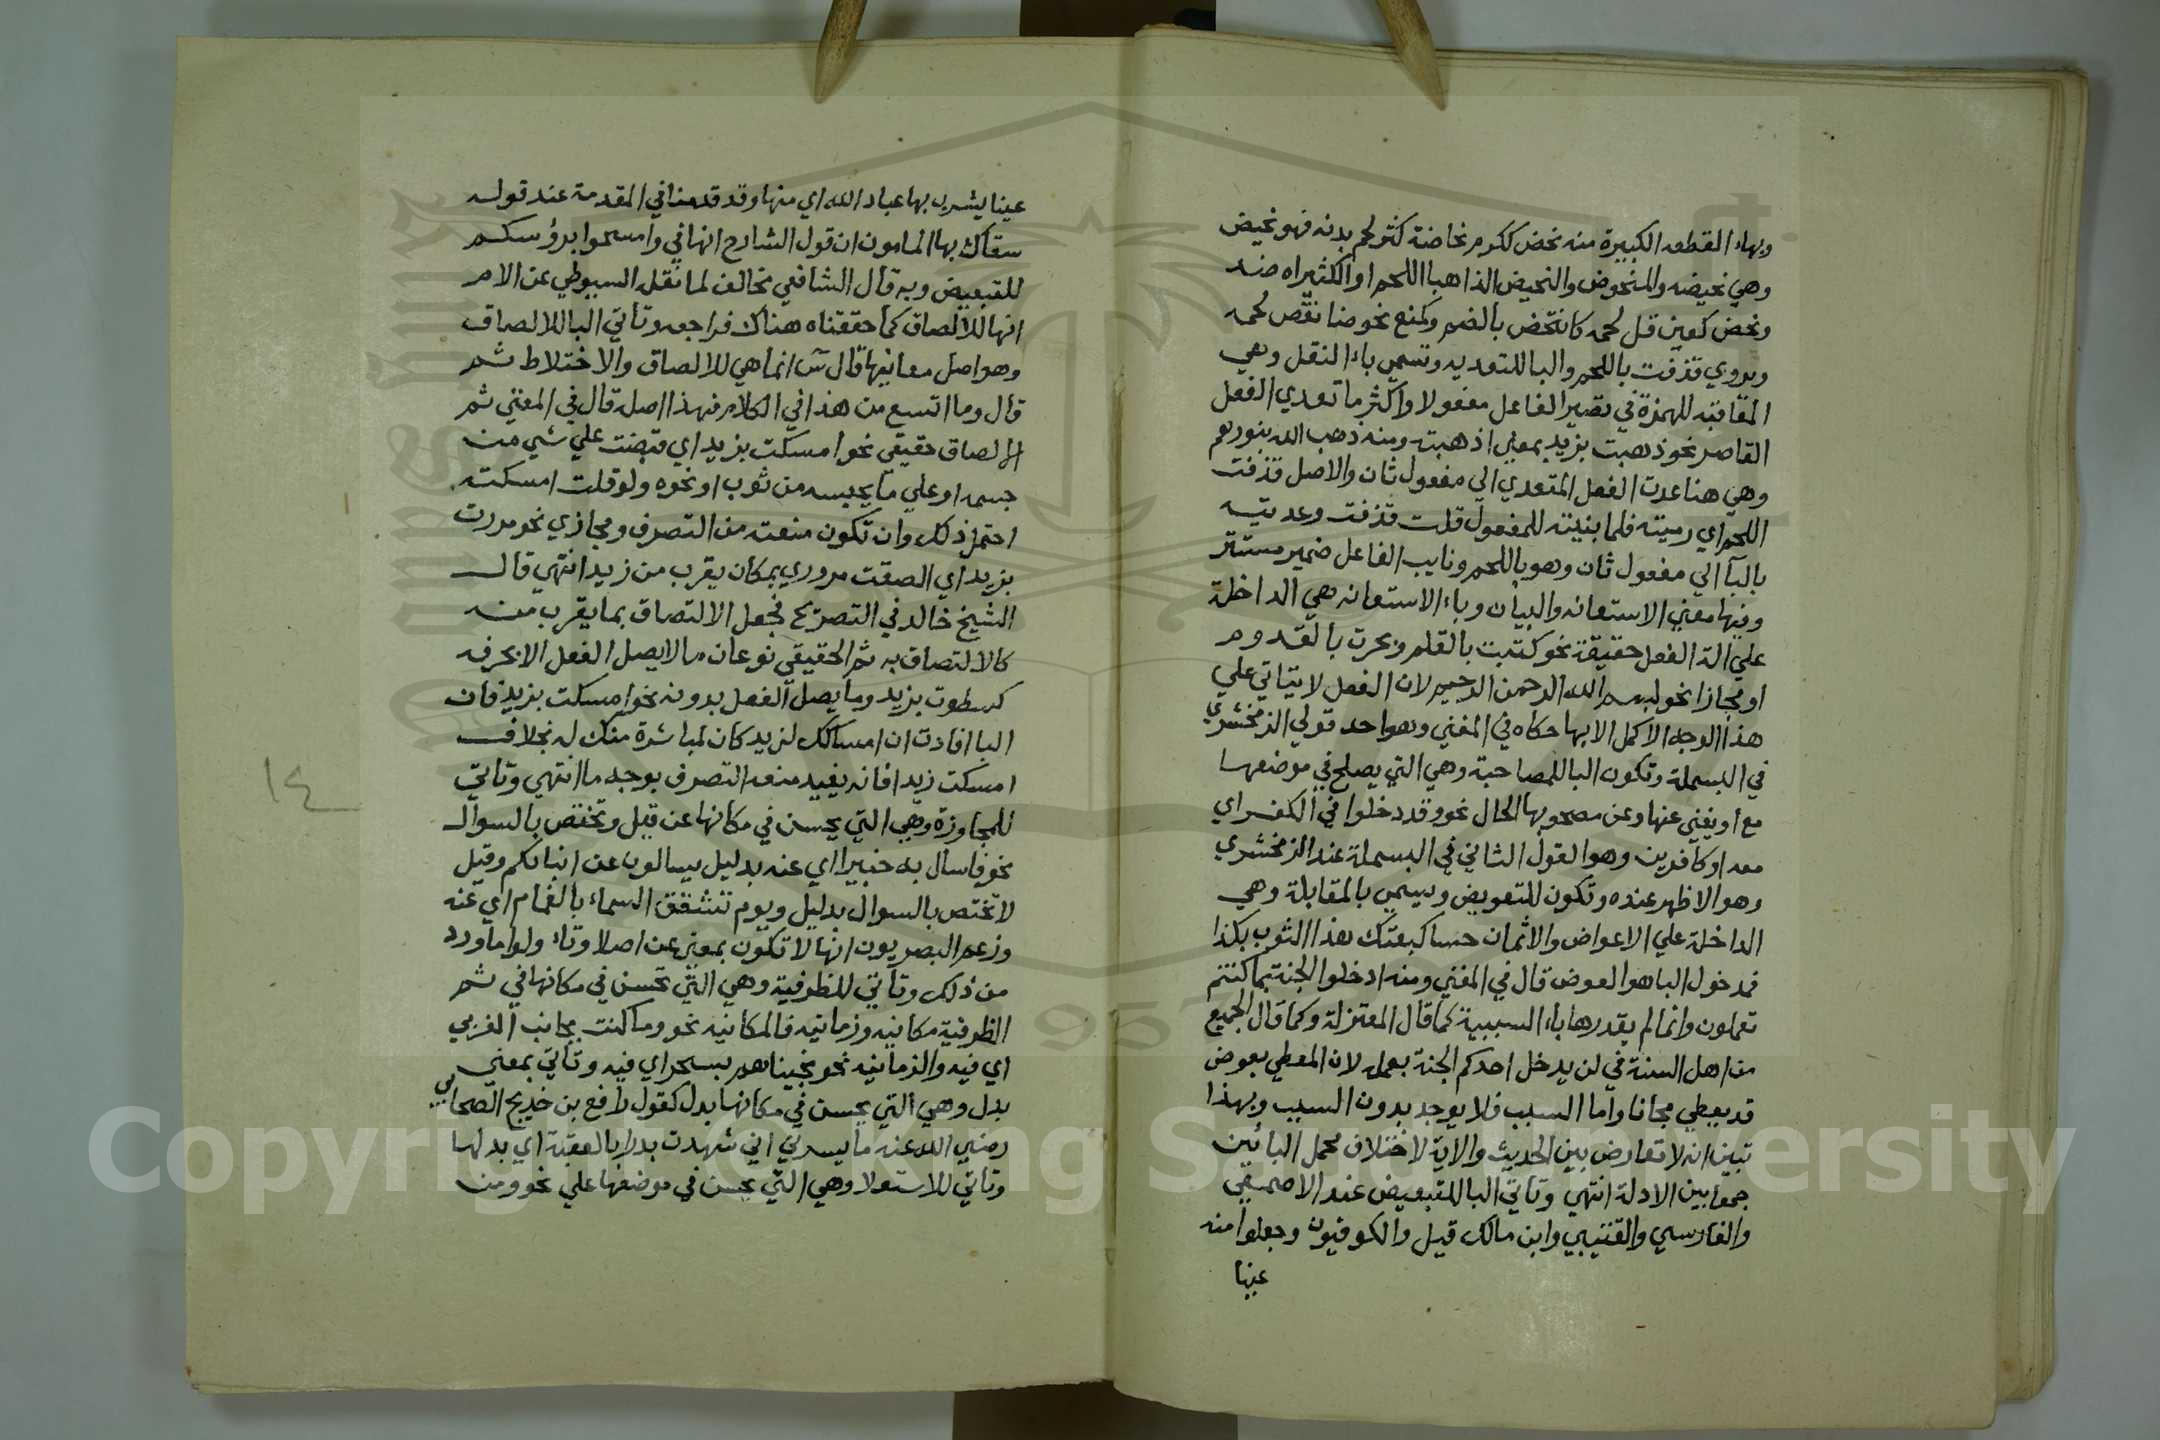 وبهاء القطعه الكبيرة منه نحض ككرم نحاضة كثر لحم بدنه فهو نحيض
وهي نحيضه والمنحوض والنحيض الذاهبا اللحم او الكثيراه ضد
ونحض كعين قل لحمه كانتحض بالضم وكمنع نحوضا نقص لحمه
ويروي قذفت باللحم والبا للتعديه وتسمي باء النقل وهي
المقاقبه للهمزة في تصير الفاعل مفعولا واكثر ما تعدي الفعل
القاصر نحو ذهبت بزيد بمعني اذهبته ومنه ذهب الله بنورهم
وهي هنا عدت الفعل المتعدي الي مفعول ثان والاصل قذفت
اللحم اي رميته فلما بنيته للمفعول قلت قذفت وعديته
بالبآ الي مفعول ثان وهو باللحم ونايب الفاعل ضمير مستتر
وفيها معني الاستعانه والبيان وباء الاستعانه هي الداخلة
علي الة الفعل حقيقة نحو كتبت بالقلم ونجرت بالقدوم
او مجازا نحو بسم الله الرحمن الرحيم لان الفعل لا يتاتي علي
هذا الوجه الاكمل الا بها حكاه في المغني وهو احد قولي الزمخشري
في البسملة وتكون البا للمصاحبة وهي التي يصلح في موضعها
مع او يغني عنها وعن مصحوبها الحال نحو وقد دخلوا في الكفر اي
معه او كافرين وهو القول الثاني في البسملة عند الزمخشري
وهو الاظهر عنده وتكون للتعويض وتسمي بالمقابلة وهي
الداخلة علي الاعواض والاثمان حسا كبعتك هذا الثوب بكذا
فمدخول البا هو العوض قال في المغني ومنه ادخلوا الجنة بما كنتم
تعملون وانما لم يقدرها باء السببية كما قال المعتزلة وكما قال الجميع
من اهل السنة في لن يدخل احدكم الجنة بعمله لان المعطي بعوض
قد يعطي مجانا واما السبب فلا يوجد بدون السبب وبهذا
تبين انه لا تعارض بين الحديث والاية لاختلاف محمل البائين
جمعا بين الادلة انتهي وتاتي البا للتبعيض عند الاصمعي
والفارسي والقتيبي وابن مالك قيل والكوفيون وجعلوا منه
عينا
عينا يشرب بها عباد الله اي منها وقد قدمنا في المقدمة عند قوله
سقاك بها المامون ان قول الشارح انها في وامسحوا برؤسكم
للتبعيض وبه قال الشافعي مخالف لما نقله السيوطي عن الام
انها للالصاق كما حققناه هناك فراجعه وتاتي البا للالصاق
وهو اصل معانيها قال س انما هي للالصاق والاختلاط ثم
قال وما اتسع من هذا في الكلام فهذا اصله قال في المغني ثم
الالصاق حقيقي نحو امسكت بزيد اي قبضت علي شي من
جسمه او علي ما يحبسه من ثوب او نحوه ولو قلت امسكته
احتمل ذلك وان تكون منعته من التصرف ومجازي نحو مررت
بزيد اي الصقت مروري بمكان يقرب من زيد انتهي قال
الشيخ خالد في التصريح فجعل الالتصاق بما يقرب منه
كالالتصاق به ثم الحقيقي نوعان ما لا يصل الفعل الا بحرفه
كسطوت بزيد وما يصل الفعل بدونه نحو امسكت بزيد فان
البا افادت ان امساكك لزيد كان لمباشرة منك له بخلاف
امسكت زيدا فانه يفيد منعه التصرف بوجه ما انتهي وتاتي
للمجاوزة وهي التي يحسن في مكانها عن قيل وتختص بالسوال
نحو فاسال به خبيرا اي عنه بدليل يسالون عن انبائكم وقيل
لا تختص بالسوال بدليل ويوم تشقق السماء بالغمام اي عنه
وزعم البصريون انها لا تكون بمعني عن اصلا وتاء ولوا ما ورد
من ذلك وتاتي للظرفية وهي التي تحسن في مكانها في ثم
الظرفية مكانيه وزمانيه فالمكانيه نحو وما كنت بجانب الغربي
اي فيه والزمانيه نحو نجيناهم بسحر اي فيه وتاتي بمعني
بدل وهي التي يحسن في مكانها بدل كقول رافع بن خديج الصحابي
رضي الله عنه ما يسرني اني شهدت بدرا بالعقبة اي بدلها
وتاتي للاستعلا وهي التي يحسن في موضعها علي نحو ومن
١٤
Copyright © King Saud University
1957